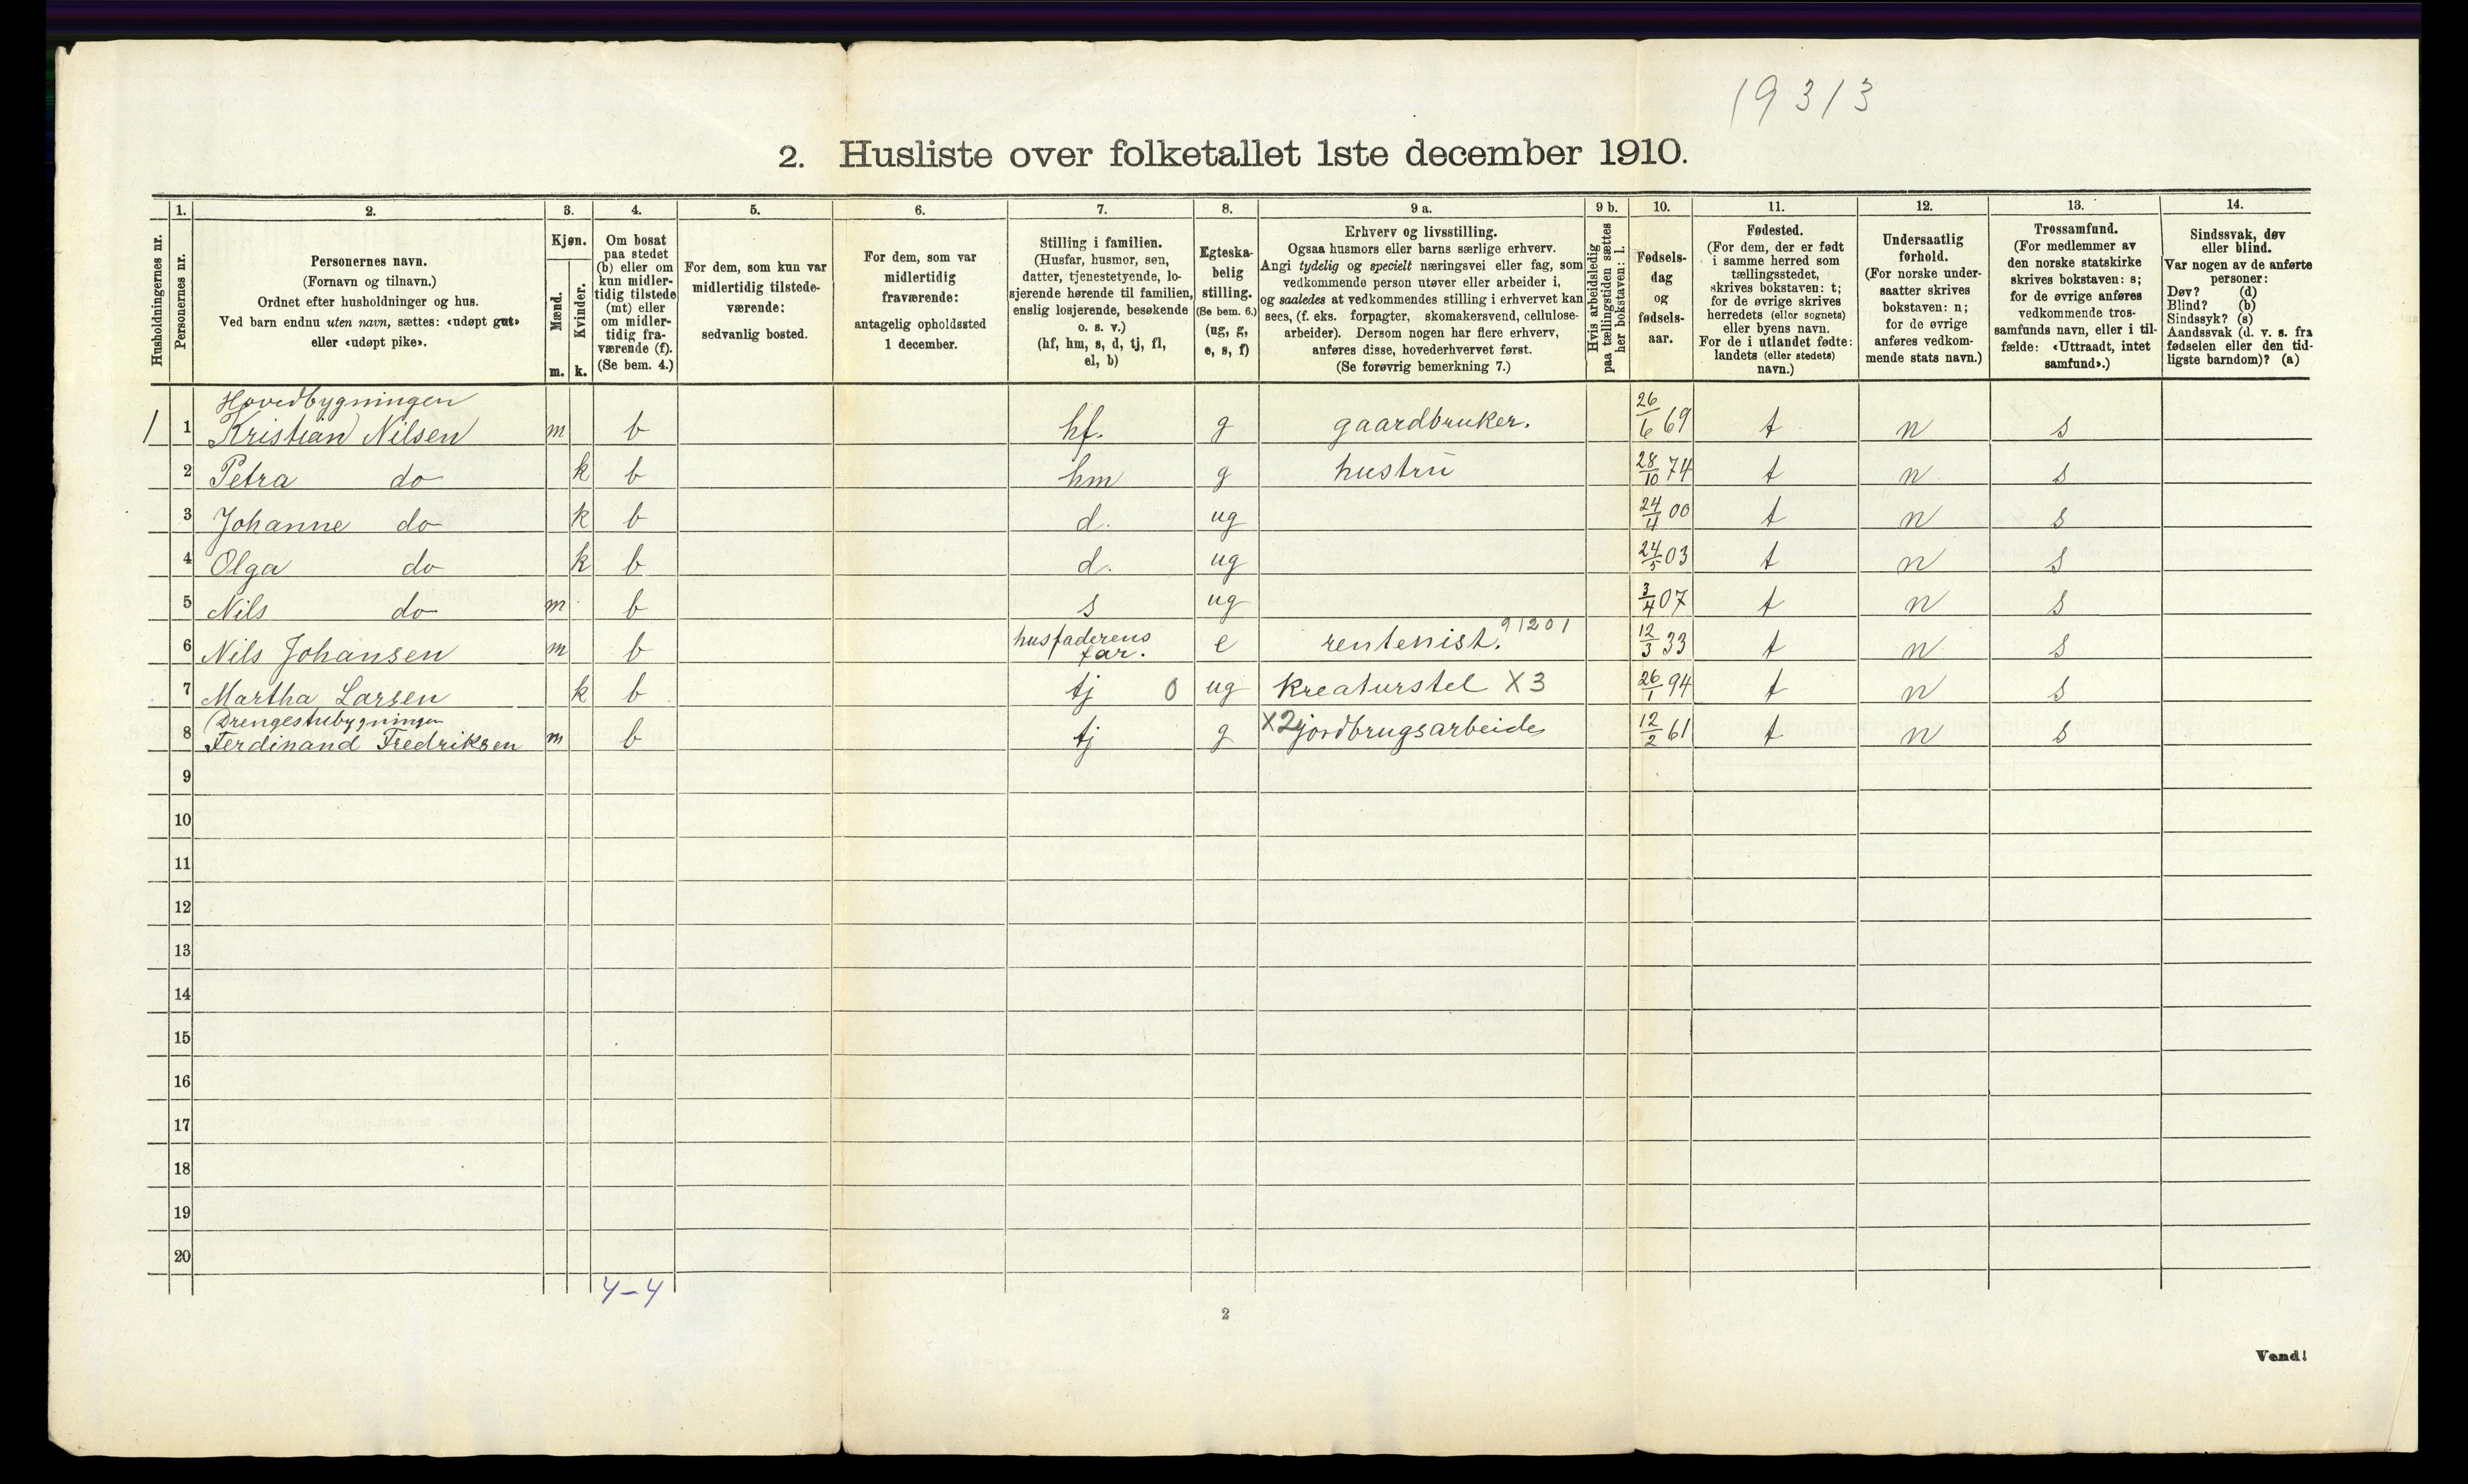 19313
2. Husliste over folketallet 1ste december 1910.
Husholdningernes nr.
1.
Personernes nr.
2.
Personernes navn.
(Fornavn og tilnavn.)
Ordnet efter husholdninger og hus.
Ved barn endnu uten navn, sættes: «udøpt gut»
eller «udøpt pike».
3.
Kjøn.
Mænd.
Kvinder.
m. k.
4.
Om bosat
paa stedet
(b) eller om
kun midler-
tidig tilstede
(mt) eller
om midler-
tidig fra-
værende (f).
(Se bem. 4.)
5.
For dem, som kun var
midlertidig tilstede-
værende:
sedvanlig bosted.
6.
For dem, som var
midlertidig
fraværende:
antagelig opholdssted
1 december.
7.
Stilling i familien.
(Husfar, husmor, søn,
datter, tjenestetyende, lo-
sjerende hørende til familien,
enslig losjerende, besøkende
o. s. v.)
(hf, hm, s, d, tj, fl,
el, b)
8.
Egteska-
belig
stilling.
(Se bem. 6.)
(ug, g,
e, s, f)
9 a.
Erhverv og livsstilling.
Ogsaa husmors eller barns særlige erhverv.
Angi tydelig og specielt næringsvei eller fag, som
vedkommende person utøver eller arbeider i,
og saaledes at vedkommendes stilling i erhvervet kan
sees, (f. eks. forpagter, skomakersvend, cellulose-
arbeider). Dersom nogen har flere erhverv,
anføres disse, hovederhvervet først.
(Se forøvrig bemerkning 7.)
9 b.
Hvis arbeidsledig
paa tællingstiden sættes
her bokstaven: l.
10.
Fødsels-
dag
og
fødsels-
aar.
11.
Fødested.
(For dem, der er født
i samme herred som
tællingsstedet,
skrives bokstaven: t;
for de øvrige skrives
herredets (eller sognets)
eller byens navn.
For de i utlandet fødte:
landets (eller stedets)
navn.)
12.
Undersaatlig
forhold.
(For norske under-
saatter skrives
bokstaven: n;
for de øvrige
anføres vedkom-
mende stats navn.)
13.
Trossamfund.
(For medlemmer av
den norske statskirke
skrives bokstaven: s;
for de øvrige anføres
vedkommende tros-
samfunds navn, eller i til-
fælde: «Uttraadt, intet
samfund».)
14.
Sindssvak, døv
eller blind.
Var nogen av de anførte
personer:
Døv? (d)
Blind? (b)
Sindssyk? (s)
Aandssvak (d. v. s. fra
fødselen eller den tid-
ligste barndom)? (a)
Hovedbygningen
1 1 Kristian Nilsen m b hf. g gaardbruker. 26/6 69 t n s
2 Petra do k b hm g hustru 28/10 74 t n s
3 Johanne do k b d. ug 24/4 00 t n s
4 Olga do k b d. ug 24/5 03 t n s
5 Nils do m b s ug 3/4 07 t n s
6 Nils Johansen m b husfaderens far. e rentenist. 91201 12/3 33 t n s
7 Martha Larsen k b tj 0 ug kreaturstel X3 26/1 94 t n s
Drengestubygningen
8 Ferdinand Fredriksen m b tj g X2 jordbrugsarbeide 12/2 61 t n s
9
10
11
12
13
14
15
16
17
18
19
20
4-4
2
Vend!